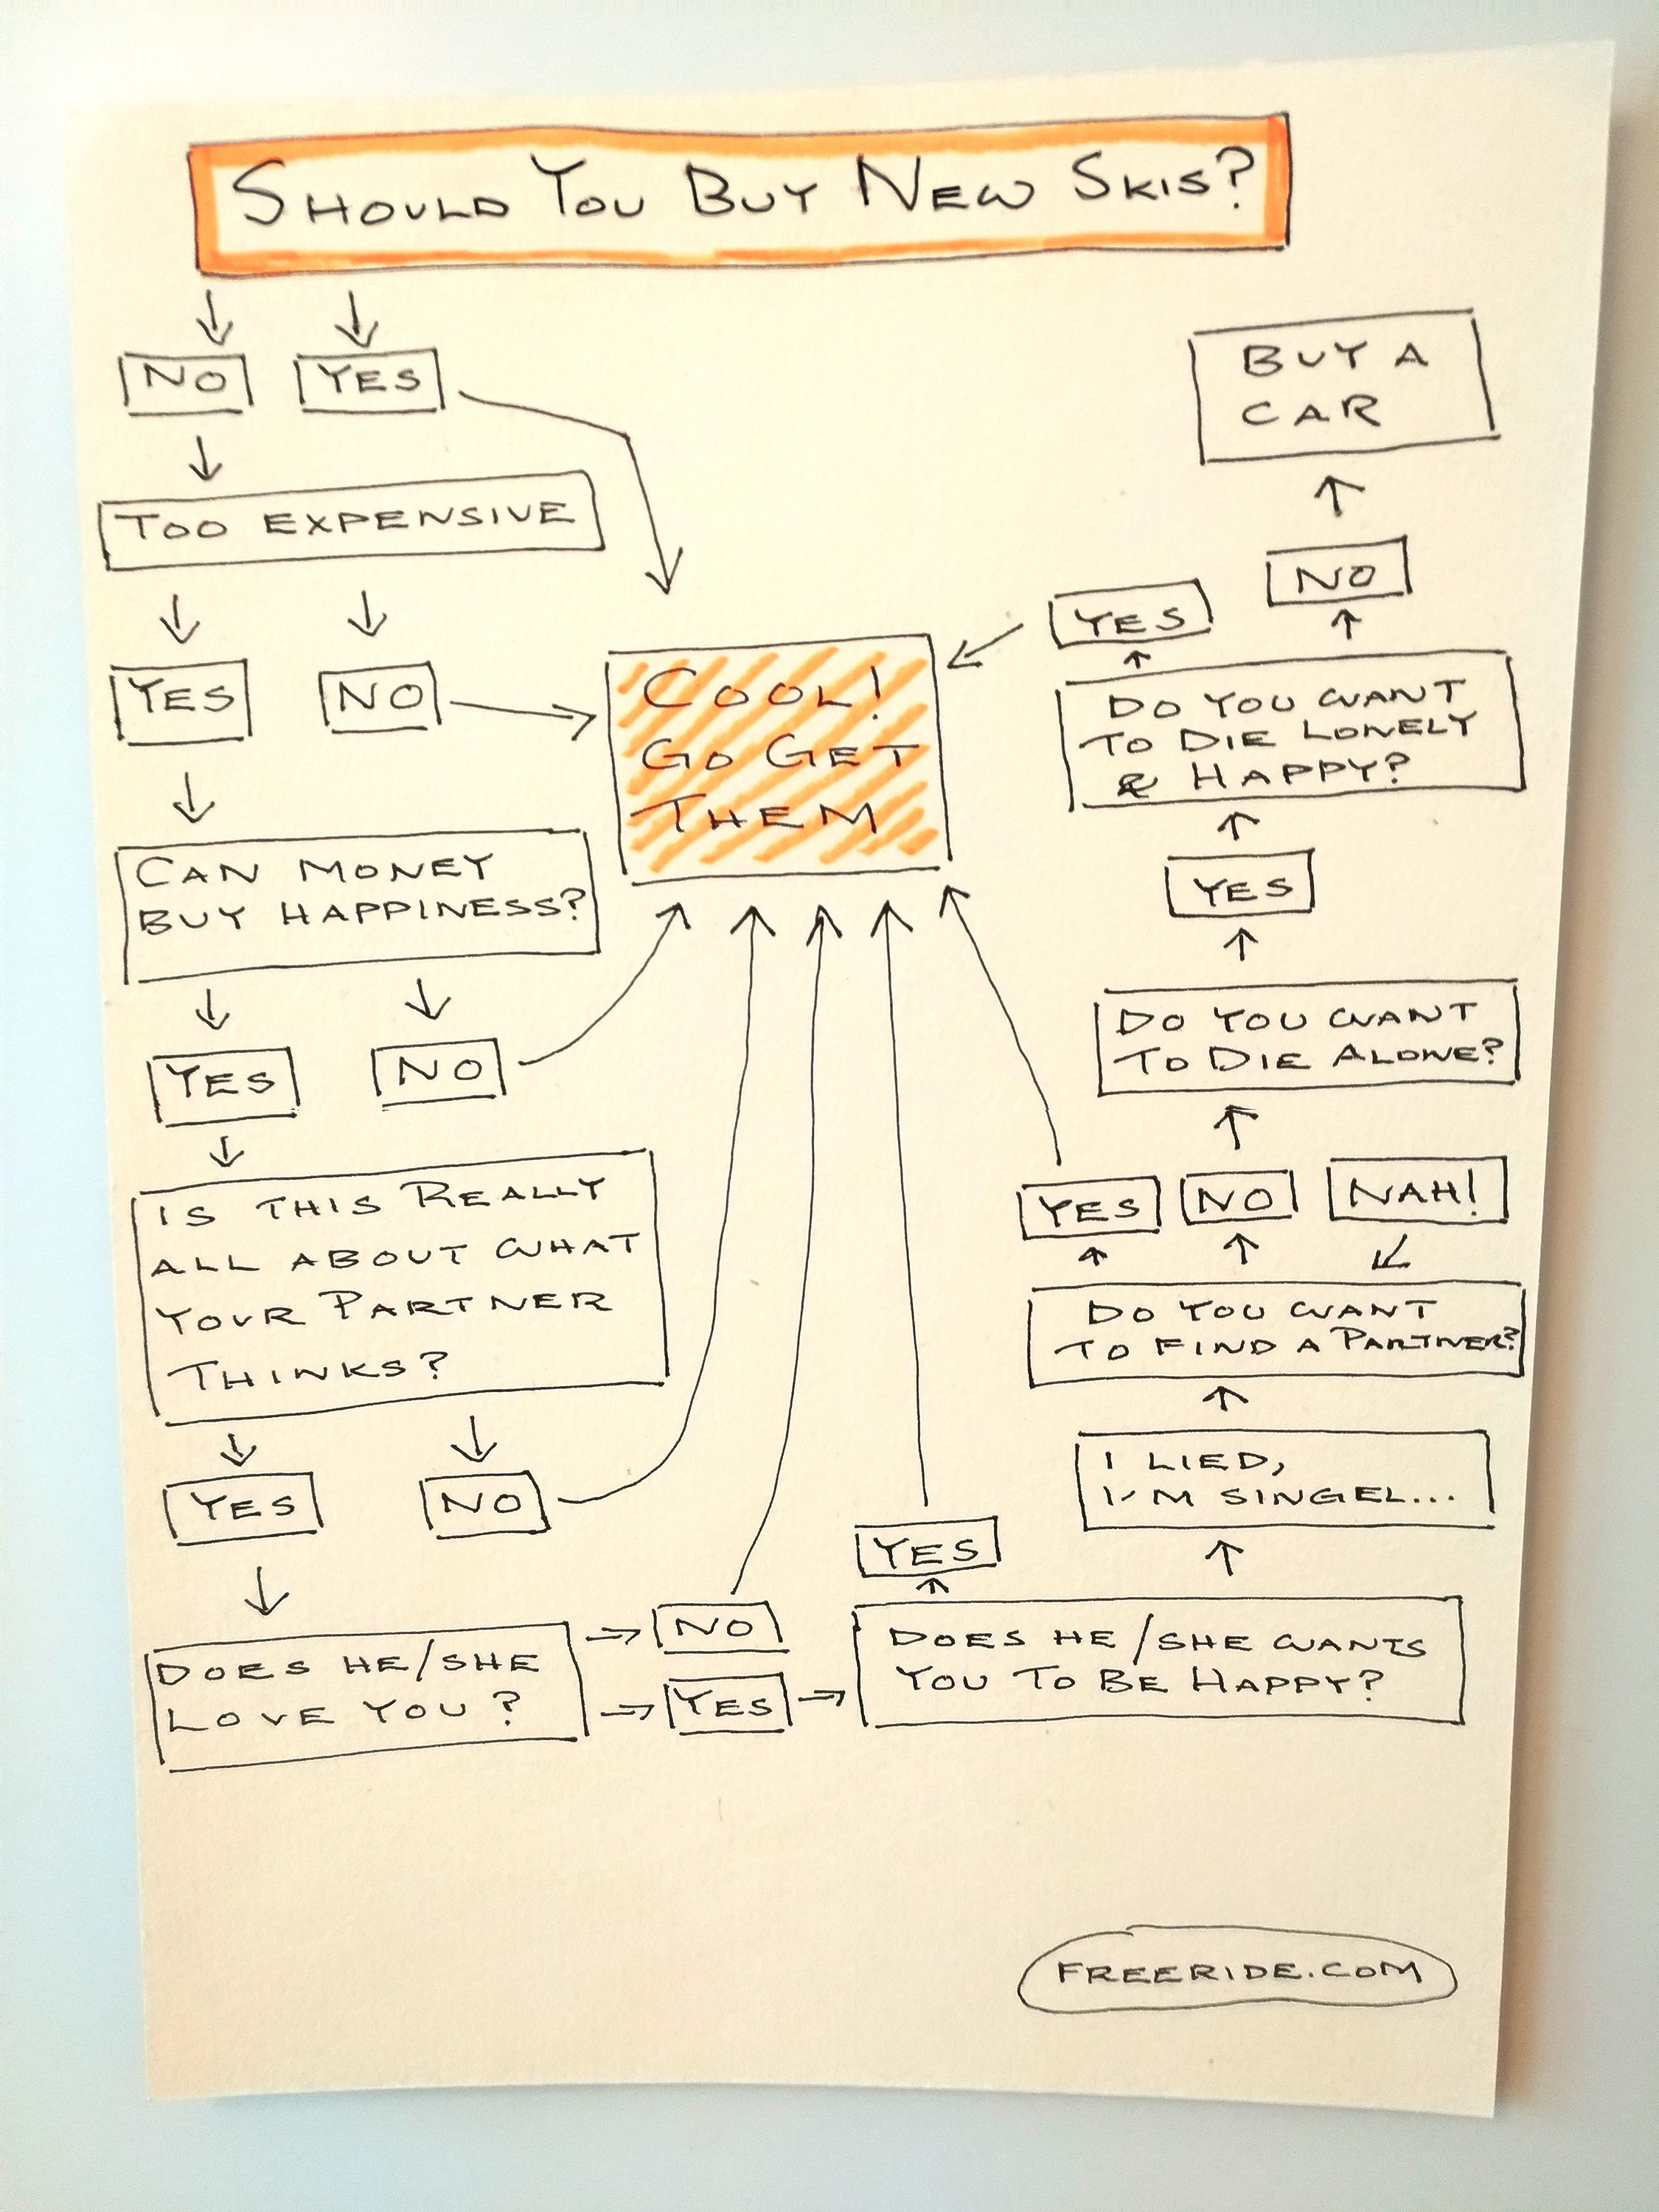 SHOULD YOU BUY NEW SKIS?
NO
YES
TOO EXPENSIVE
YES
NO
COOL!
GO GET
THEM
CAN MONEY
BUY HAPPINESS?
YES
NO
IS THIS REALLY
ALL ABOUT WHAT
YOUR PARTNER
THINKS?
YES
NO
DOES HE/SHE
LOVE YOU?
NO
YES
DOES HE/SHE WANTS
YOU TO BE HAPPY?
YES
I LIED,
I'M SINGEL...
DO YOU WANT
TO FIND A PARTNER?
YES
NO
NAH!
DO YOU WANT
TO DIE ALONE?
YES
DO YOU WANT
TO DIE LONELY
& HAPPY?
YES
NO
BUY A
CAR
FREERIDE.COM